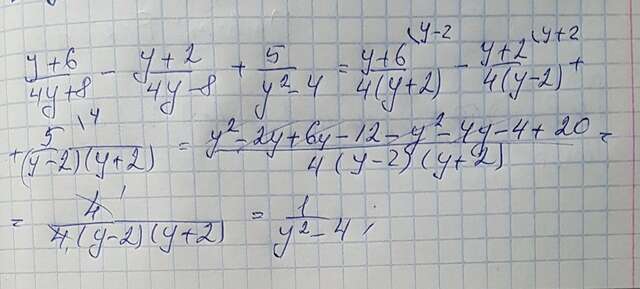 (y+6)/(4y+8) - (y+2)/(4y-8) + 5/(y²-4) = (y+6)\y-2/(4(y+2)) - (y+2)\y+2/(4(y-2)) +
+ 5\4/((y-2)(y+2)) = (y²-2y+6y-12-y²-4y-4+20)/(4(y-2)(y+2)) =
= 4 1/(4(y-2)(y+2)) = 1/(y²-4);